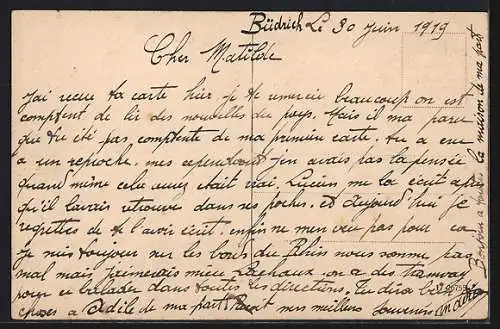 Büdrich Le 30 Juin 1919
Cher Matilde
J'ai recue ta carte hier je te remercie beaucoup on est
comptent de lir des nouvelles du pays. Mais il ma parue
que tu été pas comptente de ma première carte. tu a eue
a un reproche. mes cependant j'en avais pas la pensée
quand même cela était vrai. Lucien me la écrit après
qu'il lavais retrouve dans ses poches. et aujourd'hui je
regrettes de te l'avoir écrit. enfin ne m'en veu pas pour ça
Je suis toujour sur les bords du Rhin nous somme pas
mal mais j'aimerais mieux on a des tamway
pour ce balader dans toutes les directions. Tu dira bien des
choses a Odile de ma part. Reçoit mes meilleurs souvenirs
Bonjour a la maison de ma part